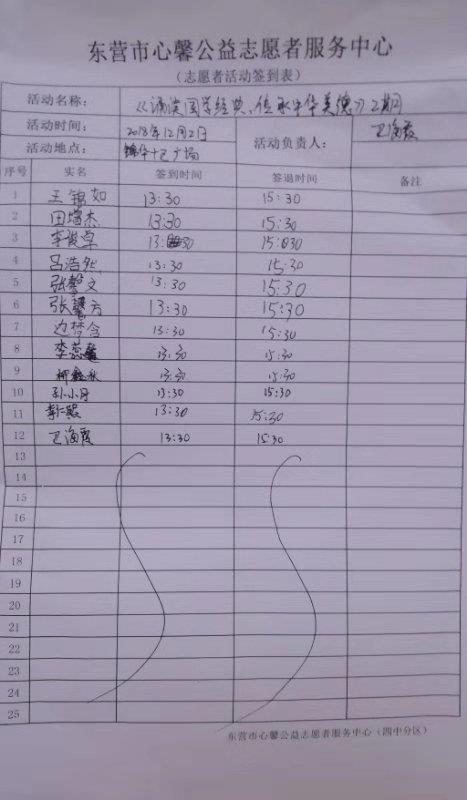 东营市心馨公益志愿者服务中心
（志愿者活动签到表）
活动名称： 《诵读国学经典、传承中华美德》2期
活动时间： 2018年12月2日 活动负责人： 卫海霞
活动地点： 锦华十区广场
序号 实名 签到时间 签退时间 备注
1 王锦如 13:30 15:30
2 田增杰 13:30 15:30
3 李俊卓 13:30 15:30
4 吕浩然 13:30 15:30
5 张馨文 13:30 15:30
6 张馨方 13:30 15:30
7 边梦含 13:30 15:30
8 李蕊馨 13:30 15:30
9 13:30 15:30
10 孙小丹 13:30 15:30
11 13:30 15:30
12 卫海霞 13:30 15:30
13
14
15
16
17
18
19
20
21
22
23
24
25
东营市心馨公益志愿者服务中心（四中分区）